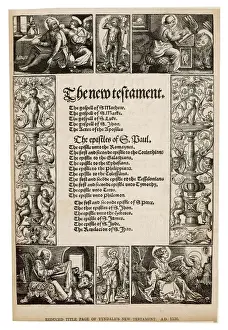 The new testament.
The gospell of S. Mathew.
The gospell of S. Marke.
The gospell of S. Luke.
The gospell of S. Jhon.
The Actes of the Apostles
The epistles of S. Paul.
The epistle unto the Romaynes.
The first and seconde epistle to the Corinthians
The epistle to the Galathyans.
The epistle to the Ephesians.
The epistle to the Philippians.
The epistle to the Colossians.
The first and seconde epistle to the Tessalonians
The first and seconde epistle unto Tymothy.
The epistle unto
The epistle unto Philemon.
The first and seconde epistle of S. Peter.
The thre epistles of S. Jhon.
The epistle unto the Hebrues.
The epistle of S. James.
The epistle of S. Jude.
The Revelacion of S. Jhon.
REDUCED TITLE PAGE OF TYNDALE'S NEW TESTAMENT. A.D.